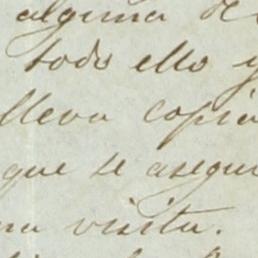 alguna de
todo ello y
lleva copia
que se asegu
na visita.